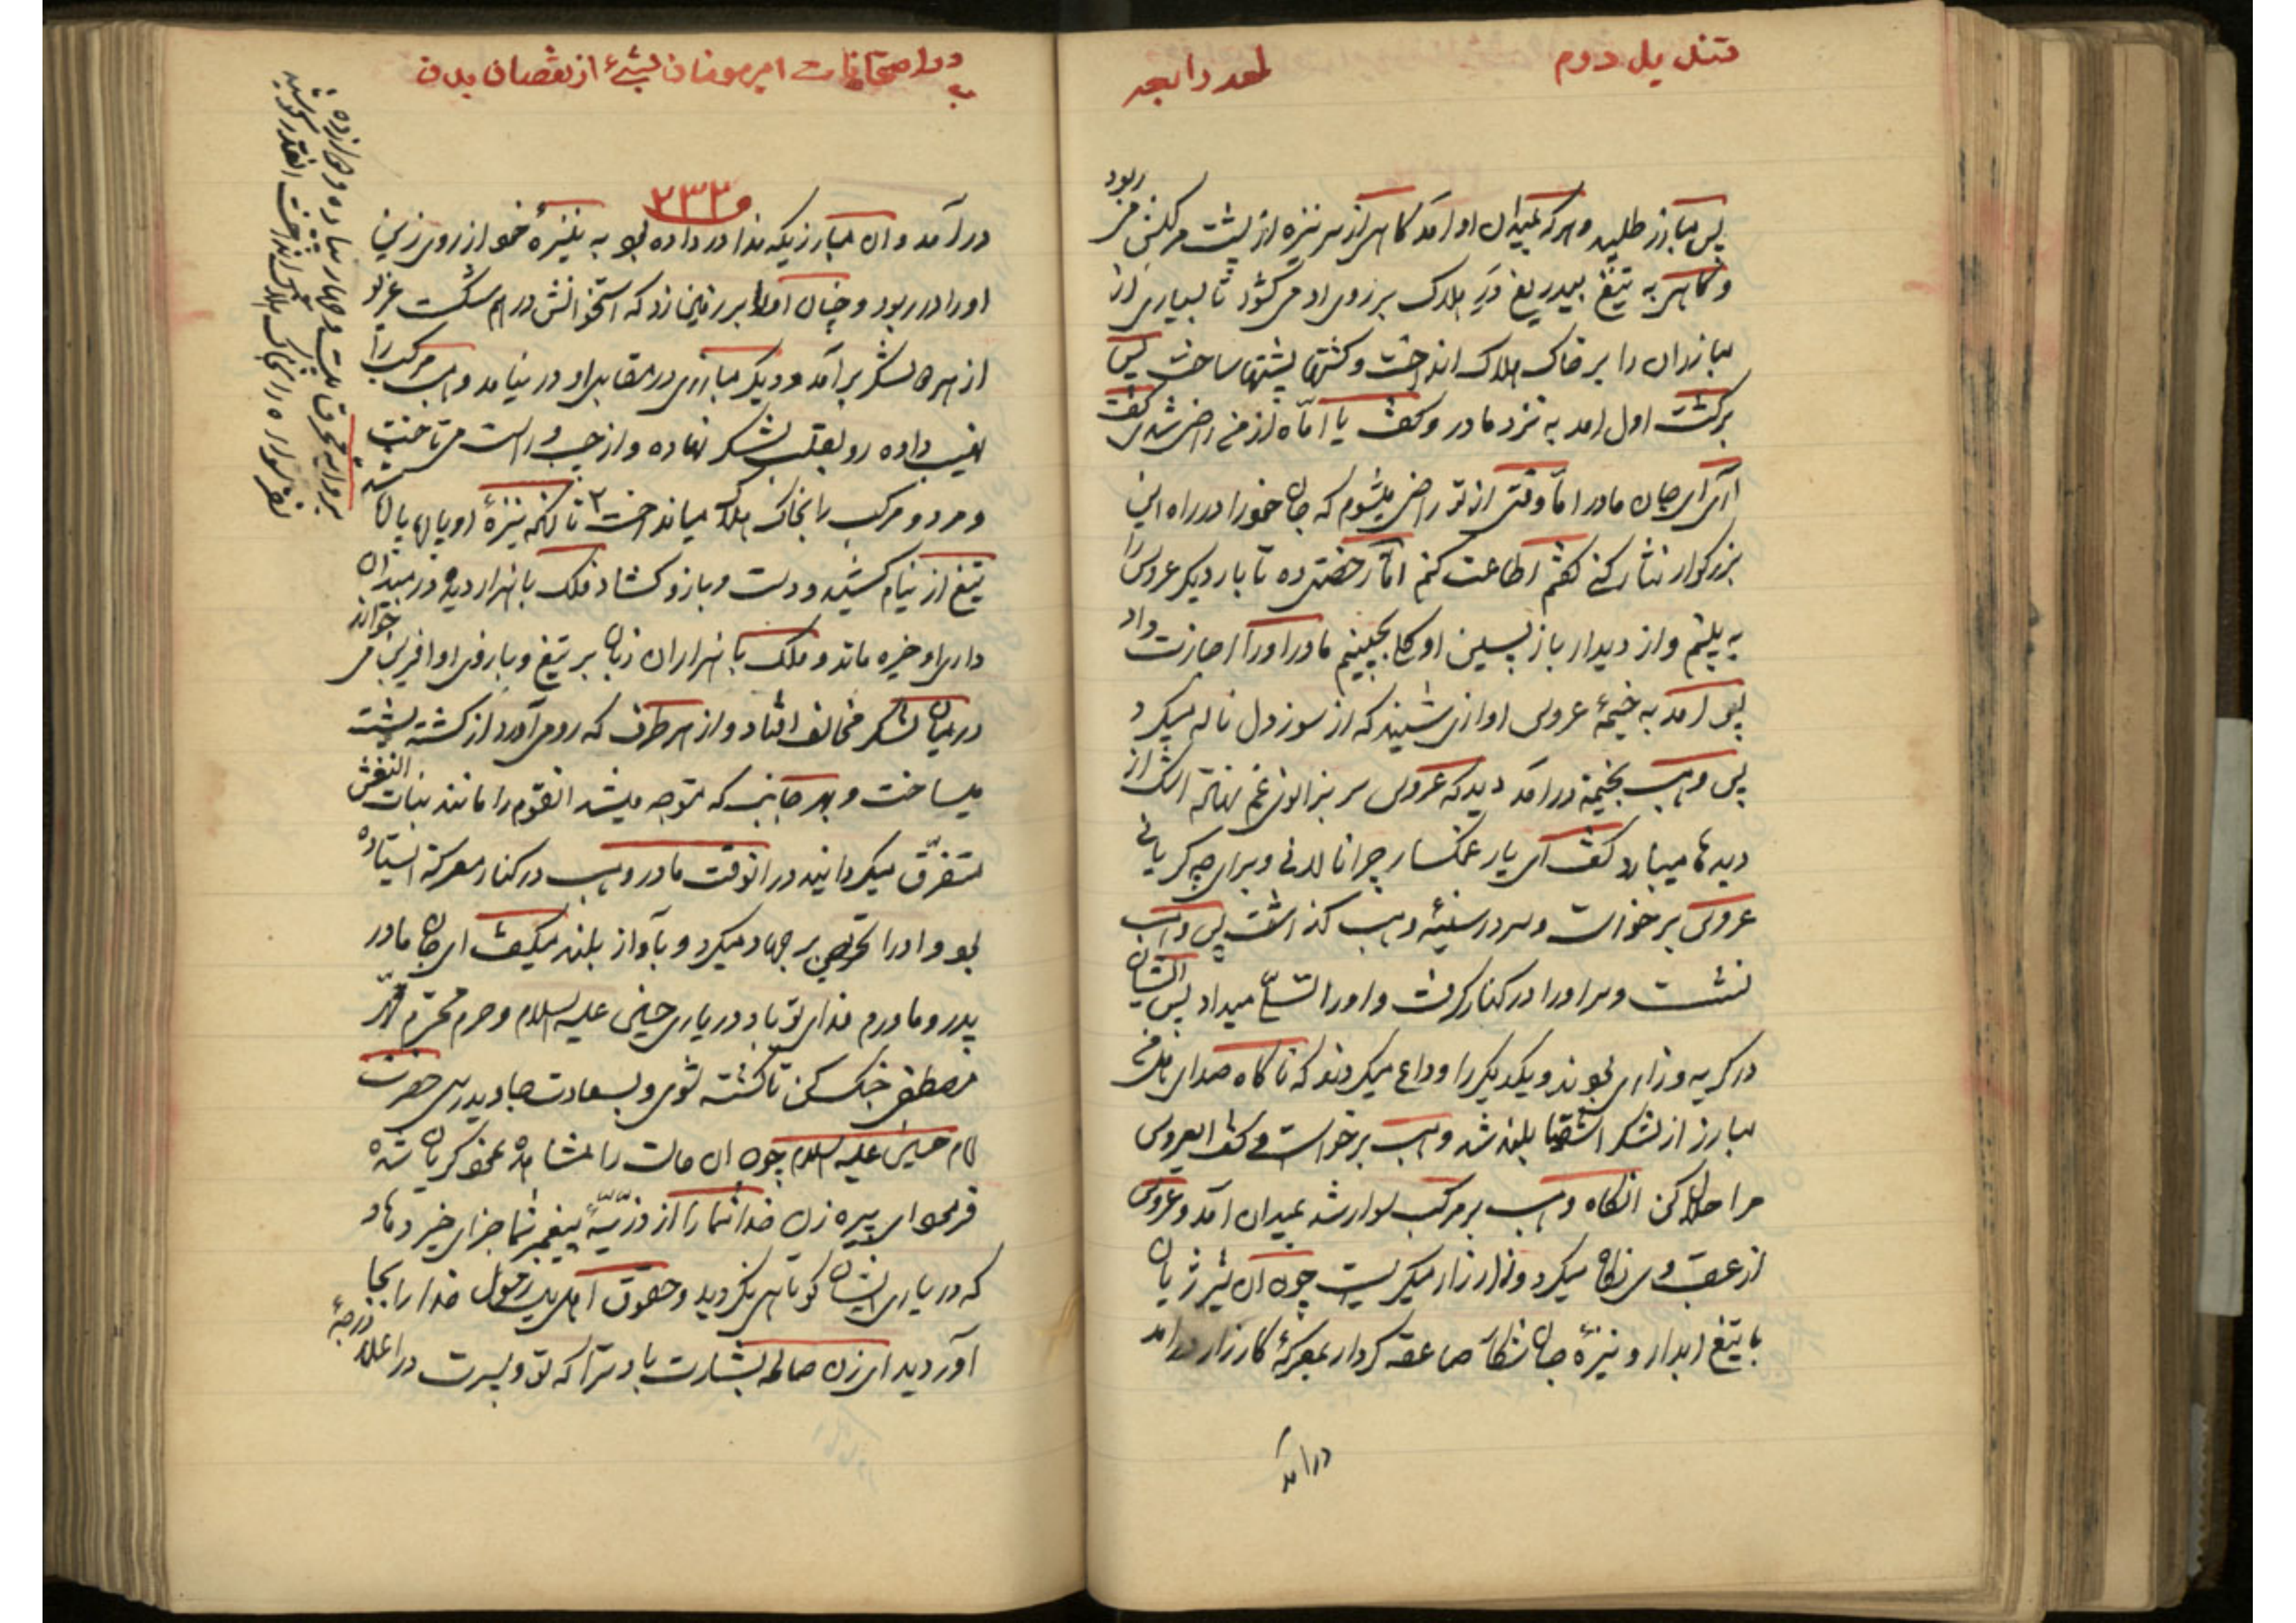 قندیل دوم
لمعه رابعه
پس مبارز طلبید و هرکه بمیدان او آمد گاهی از سر نیزه از پشت مرکبش می ربود
و گاهی به تیغ بیدریغ در هلاک بر روی او می کشود تا بسیاری از
مبارزان را بر خاک هلاک انداخت و کشتها پشتها ساخت پس
برکشت اول امد به نزد مادر و کفت یا اماه از من راضی شدی کفت
آری ای جان مادر اما وقتی از تو راضی میشوم که جان خود را در راه این
بزرکوار نثار کنی کفتم اطاعت کنم اما رخصتی ده تا بار دیکر عروس را
به بینم و از دیدار باز پسین او کل بچینم مادر او را اجازت داد
پس امد به خیمهٔ عروس اوازی شنیند که از سوز دل ناله میکرد
پس وهب بخیمه درامد دید که عروس سر بزانوی غم نهاده اشک از
دیدها میبارد کفت ای یار غمکسار چرا نالانی و برای چه کریانی
عروس برخواست و سر در سینهٔ وهب کذاشت پس وهب
نشست و سر او را در کنار کرفت و او را تسلی میداد پس ایشان
در کریه و زاری بودند و یکدیکر را وداع میکردند که ناکاه صدای هل من
مبارز از لشکر اشقیا بلند شد وهب برخواست و کفت ایعروس
مرا حلال کن انکاه وهب بر مرکب سوار شد بمیدان آمد و عروس
از عقب وی نکاه میکرد و زار زار میکریست چون ان شیر ژیان
با تیغ ابدار و نیزهٔ جان شکار صاعقه کردار بمعرکهٔ کارزار درامد
درآمد
در امتحانات امیر مومنان لیثی از نقصان بدن
۲۳۲
درآمد و ان مبارزیکه ندا در داده بود به نیزهٔ خود از روی زین
او را در ربود و چنان او را بر زمین زد که استخوانش درهم شکست غریو
از هر دو لشکر برآمد و دیکر مبارزی در مقابل او در نیامد وهب مرکب را
نهیب داده رو بقلب لشکر نهاده و از چپ و راست می تاخت
و مرد و مرکب را بخاک هلاک میانداخت ۲ تا انکه نیزهٔ او پاره پاره شد
تیغ از نیام کشید و دست و بازو کشاد فلک با هزار دیده در میدان
داری او خیره ماند و ملک با هزاران زبان بر تیغ و بازوی او افرین می خواند
در میان لشکر مخالف افتاد و از هر طرف که رو می آورد از کشته پشته
میساخت و بهر جانب که متوجه میشد انقوم را مانند بنات النعش
متفرق میکردانید در انوقت مادر وهب در کنار معرکه ایستاده
بود و او را تحریص بر جهاد میکرد و بآواز بلند میکفت ای جان مادر
پدر و مادرم فدای تو باد در یاری حسین علیه السلام و حرم محترم
مصطفی جنک کن تا کشته شوی و بسعادت جاوید رسی حضرت
امام حسین علیه السلام چون ان حالت را مشاهده نمود کریان شده
فرمود ای پیره زن خدا شما را از ذریّهٔ پیغمبر شما جزای خیر دهاد
که در یاری ایشان کوتاهی نکردید و حقوق اهل بیت رسول خدا را بجا
آوردید ای زن صالحه بشارت باد ترا که تو و پسرت در اعلا درجهٔ